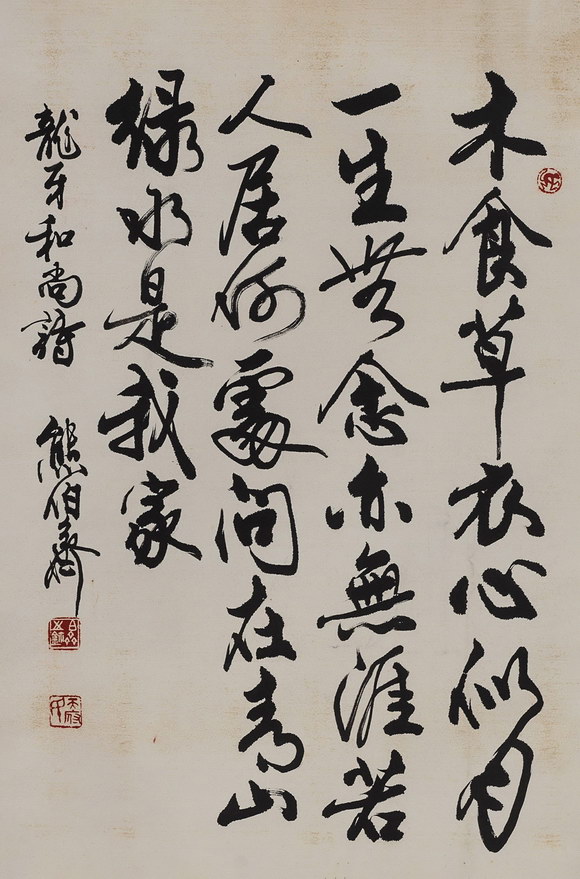 木食草衣心似月
一生無念亦無涯若
人居何處問在青山
綠水是我家
龍牙和尚詩 熊伯齊